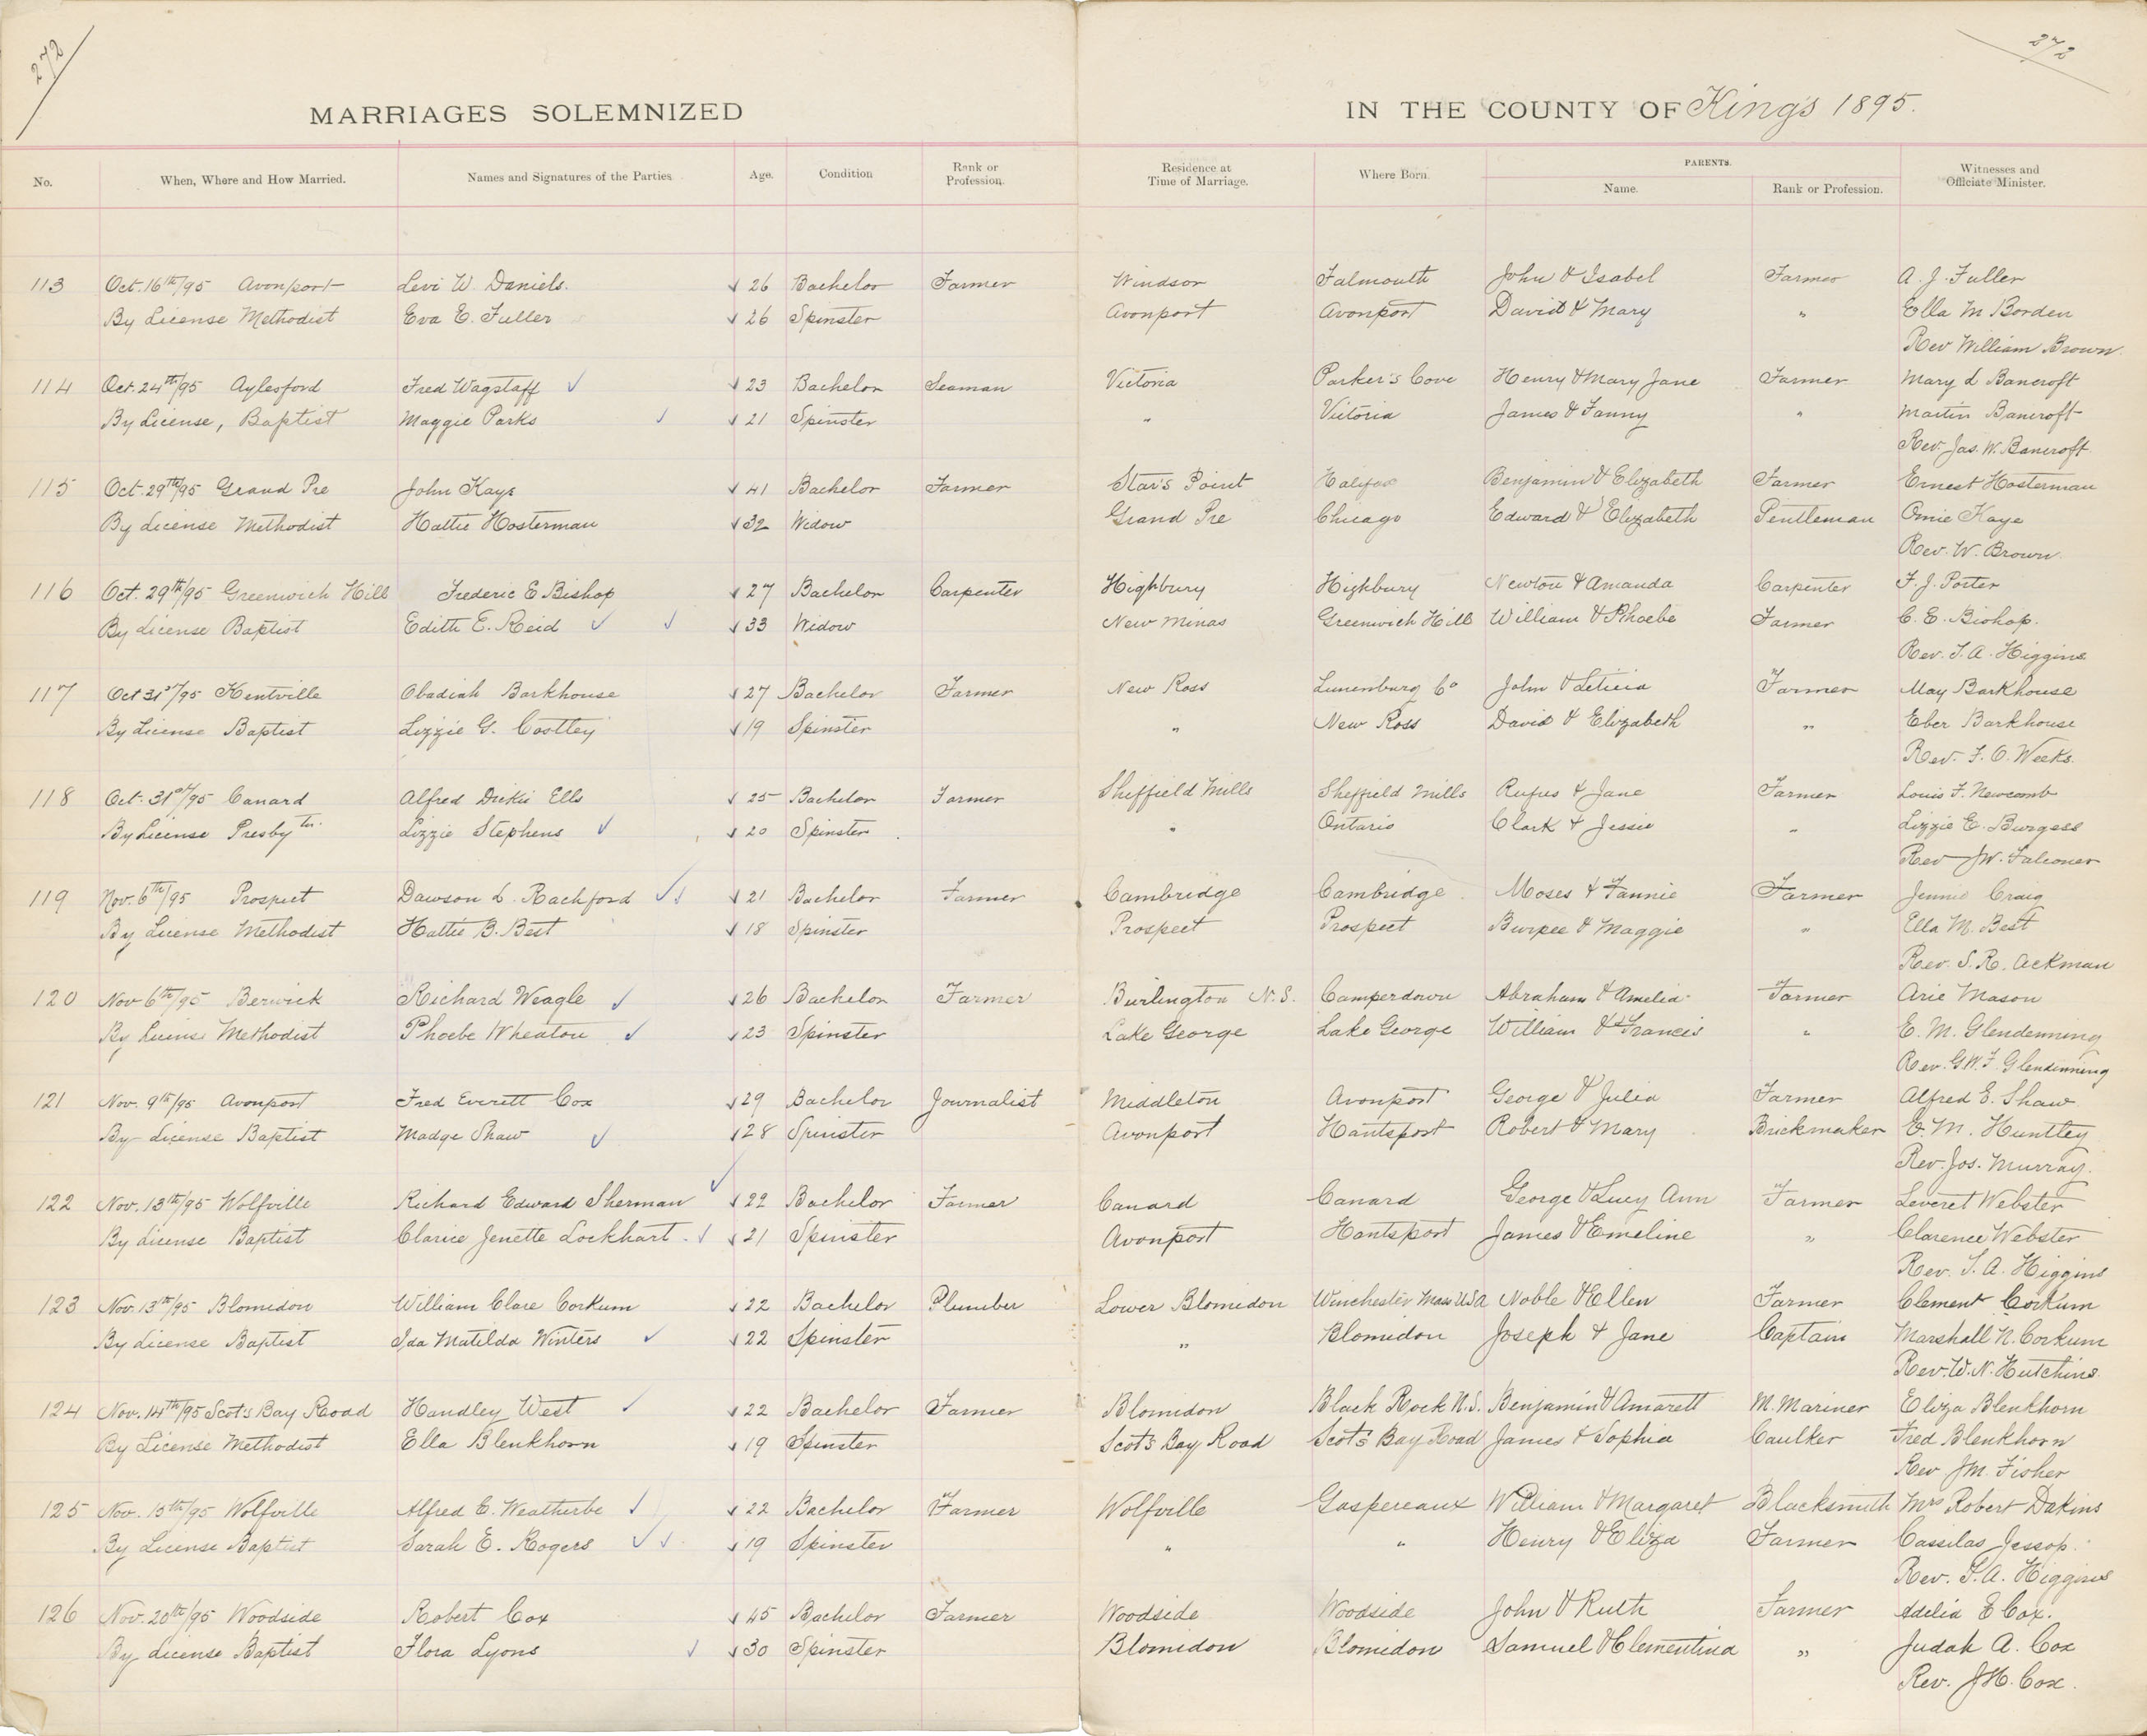 272
272
MARRIAGES SOLEMNIZED IN THE COUNTY OF King's 1895.
No. When, Where and How Married. Names and Signatures of the Parties Age. Condition Rank or Profession. Residence at Time of Marriage. Where Born. PARENTS. Name. Rank or Profession. Witnesses and Officiate Minister.
113 Oct. 16th/95 Avonport Levi W. Daniels. 26 Bachelor Farmer Windsor Falmouth John & Isabel Farmer A. J. Fuller
By License Methodist Eva E. Fuller 26 Spinster Avonport Avonport David & Mary " Ella M Borden
Rev William Brown.
114 Oct. 24th/95 Aylesford Fred Wagstaff 23 Bachelor Seaman Victoria Parker's Cove Henry & Mary Jane Farmer Mary L Bancroft
By License, Baptist Maggie Parks 21 Spinster " Victoria James & Fanny " Martin Bancroft
Rev. Jas. W. Bancroft.
115 Oct. 29th/95 Grand Pre John Kaye 41 Bachelor Farmer Star's Point Halifax Benjamin & Elizabeth Farmer Ernest Hosterman
By License Methodist Hattie Hosterman 32 Widow Grand Pre Chicago Edward & Elizabeth Gentleman Omie Kaye
Rev. W. Brown.
116 Oct. 29th/95 Greenwich Hill Frederic E Bishop 27 Bachelor Carpenter Highbury Highbury Newton & Amanda Carpenter F. J. Porter
By License Baptist Edith E. Reid 33 Widow New Minas Greenwich Hill William & Phoebe Farmer C. E. Bishop.
Rev. T. A. Higgins
117 Oct 31st/95 Kentville Obadiah Barkhouse 27 Bachelor Farmer New Ross Lunenburg Co John & Leticia Farmer May Barkhouse
By License Baptist Lizzie G. Costley 19 Spinster " New Ross David & Elizabeth " Eber Barkhouse
Rev. F. O. Weeks.
118 Oct. 31st/95 Canard Alfred Dickie Ells 25 Bachelor Farmer Sheffield Mills Sheffield Mills Rufus & Jane Farmer Louis F. Newcomb
By License Presbytn. Lizzie Stephens 20 Spinster " Ontario Clark & Jessie " Lizzie E. Burgess
Rev JW. Falconer
119 Nov. 6th/95 Prospect Dawson L. Rachford 21 Bachelor Farmer Cambridge Cambridge Moses & Fannie Farmer Jennie Craig
By License Methodist Hattie B. Best 18 Spinster Prospect Prospect Burpee & Maggie " Ella M. Best
Rev. S. R. Ackman
120 Nov 6th/95 Berwick Richard Weagle 26 Bachelor Farmer Burlington N.S. Camperdown Abraham & Amelia Farmer Arie Mason
By License Methodist Phoebe Wheaton 23 Spinster Lake George Lake George William & Francis " E. M. Glendenning
Rev. G.W.F Glendenning
121 Nov. 9th/95 Avonport Fred Everett Cox 29 Bachelor Journalist Middleton Avonport George & Julia Farmer Alfred E. Shaw
By License Baptist Madge Shaw 28 Spinster Avonport Hantsport Robert & Mary Brickmaker E. M. Huntley
Rev. Jos. Murray.
122 Nov. 13th/95 Wolfville Richard Edward Sherman 22 Bachelor Farmer Canard Canard George & Lucy Ann Farmer Leveret Webster
By License Baptist Clarice Jenette Lockhart 21 Spinster Avonport Hantsport James & Emeline " Clarence Webster
Rev. T. A. Higgins
123 Nov. 13th/95 Blomidon William Clare Corkum 22 Bachelor Plumber Lower Blomidon Winchester Mass USA Noble & Ellen Farmer Clement Corkum
By License Baptist Ida Matilda Winters 22 Spinster " Blomidon Joseph & Jane Captain Marshall N. Corkum
Rev. W. N. Hutchins.
124 Nov. 14th/95 Scot's Bay Road Handley West 22 Bachelor Farmer Blomidon Black Rock N.S. Benjamin & Amarett M. Mariner Eliza Blenkhorn
By License Methodist Ella Blenkhorn 19 Spinster Scot's Bay Road Scot's Bay Road James & Sophia Caulker Fred Blenkhorn
Rev JM. Fisher
125 Nov. 15th/95 Wolfville Alfred C. Weatherbe 22 Bachelor Farmer Wolfville Gaspereaux William & Margaret Blacksmith Mrs Robert Dakins
By License Baptist Sarah E. Rogers 19 Spinster " " Henry & Eliza Farmer Cassilas Jessop.
Rev. T. A. Higgins
126 Nov. 20th/95 Woodside Robert Cox 45 Bachelor Farmer Woodside Woodside John & Ruth Farmer Adelia E Cox.
By License Baptist Flora Lyons 30 Spinster Blomidon Blomidon Samuel & Clementina " Judah A. Cox
Rev. J H. Cox.